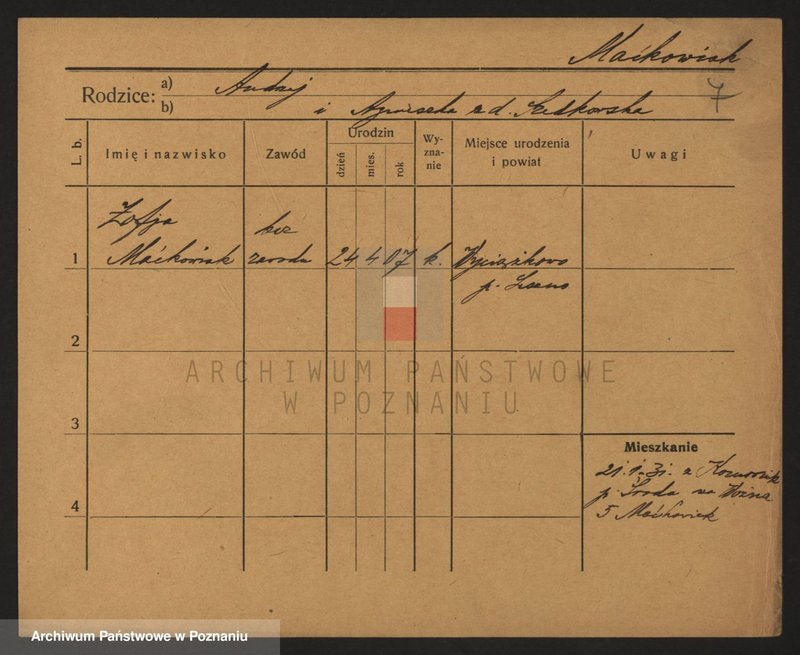 Maćkowiak
7
Rodzice: a) Andrzej
b) i Agnieszka z d.
L. b.
Imię i nazwisko
Zawód
Urodzin
dzień
mies.
rok
Wy-
zna-
nie
Miejsce urodzenia
i powiat
Uwagi
Zofja
bez
1 Maćkowiak zawodu 24 4 07 k. Wyciążkowo
p. Leszno
2
ARCHIWUM PAŃSTWOWE
W POZNANIU
3
Mieszkanie
21.1.31. z
p. Środa na Woźna
4
5 Maćkowiak
Archiwum Państwowe w Poznaniu